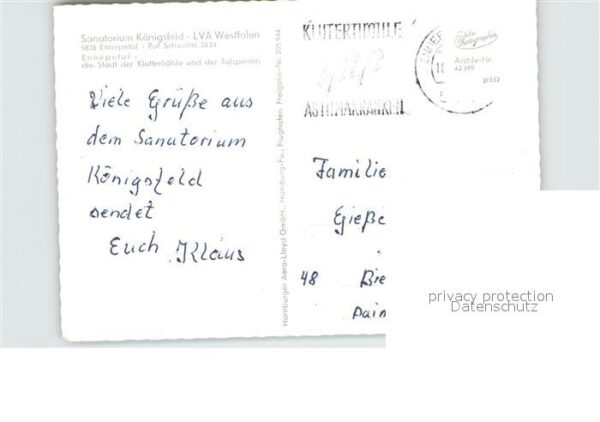 Sanatorium Königsfeld - LVA Westfalen
5828 Ennepetal - Ruf Schwelm 3224
Ennepetal -
die Stadt der Kluterthöhle und der Talsperren
Viele Grüße aus
dem Sanatorium
Königsfeld
sendet
Euch Klaus
Hamburger Aero-Lloyd GmbH., Hamburg-Fu., Flughafen Freigabe-Nr.
KLUTERTHÖHLE
hilft
ASTHMAKRANKEN
Archiv-Nr.
Familie
Gieße
48 Bie
Pain
privacy protection
Datenschutz